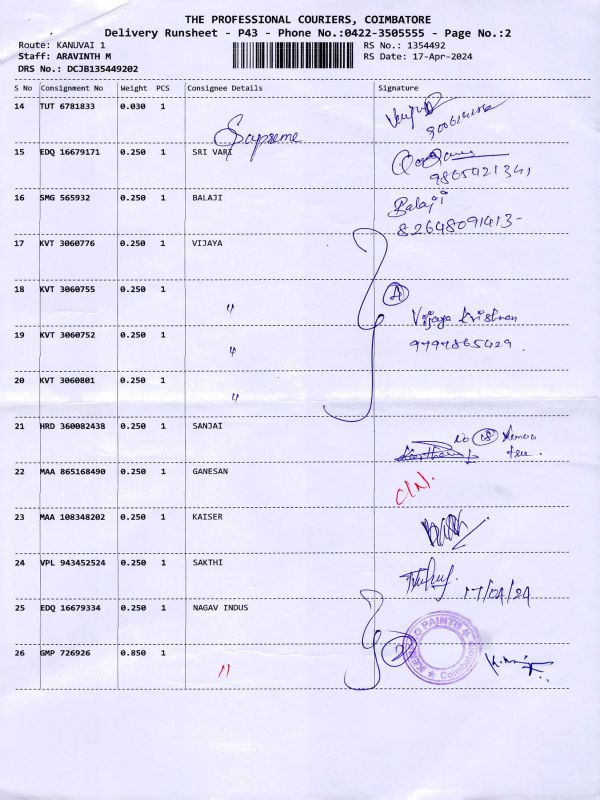 THE PROFESSIONAL COURIERS, COIMBATORE
Delivery Runsheet - P43 - Phone No.:0422-3505555 - Page No.:2
Route: KANUVAI 1 RS No.: 1354492
Staff: ARAVINTH M RS Date: 17-Apr-2024
DRS No.: DCJB135449202
S No Consignment No Weight PCS Consignee Details Signature
14 TUT 6781833 0.030 1 Supreme
15 EDQ 16679171 0.250 1 SRI VARI
9865421341
16 SMG 565932 0.250 1 BALAJI Balaji
82648091413-
17 KVT 3060776 0.250 1 VIJAYA
18 KVT 3060755 0.250 1 〃 4
Vijaya Krishnan
19 KVT 3060752 0.250 1 〃
20 KVT 3060801 0.250 1 〃
21 HRD 360082438 0.250 1 SANJAI No 18
22 MAA 865168490 0.250 1 GANESAN C/N.
23 MAA 108348202 0.250 1 KAISER
24 VPL 943452524 0.250 1 SAKTHI 17/04/24
25 EDQ 16679334 0.250 1 NAGAV INDUS
26 GMP 726926 0.850 1 〃 2
PAINTS
Coimbatore